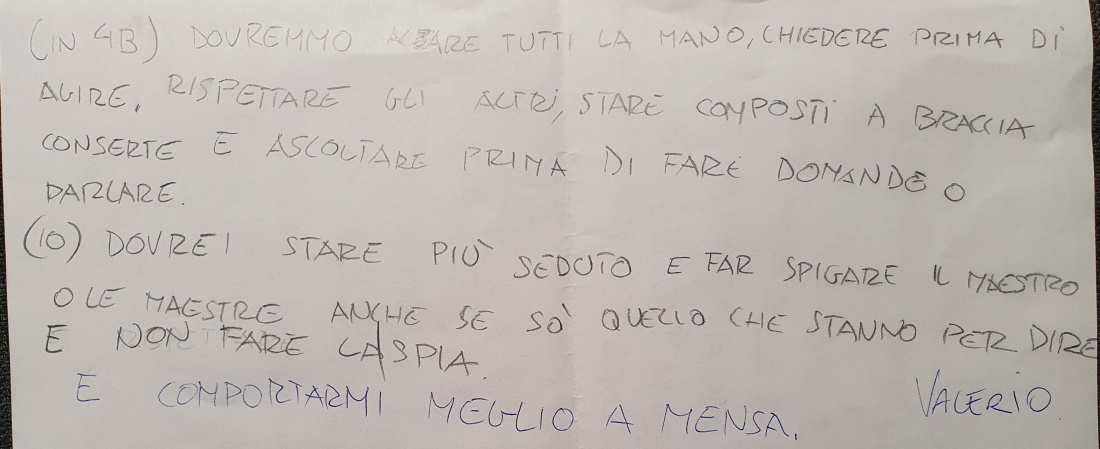 (IN 4B) DOVREMMO ALZARE TUTTI LA MANO, CHIEDERE PRIMA DI
AGIRE, RISPETTARE GLI ALTRI, STARE COMPOSTI A BRACCIA
CONSERTE E ASCOLTARE PRIMA DI FARE DOMANDE O
PARLARE.
(IO) DOVREI STARE PIÙ SEDUTO E FAR SPIGARE IL MAESTRO
O LE MAESTRE ANCHE SE SÒ QUELLO CHE STANNO PER DIRE
E NON FARE LA SPIA.
E COMPORTARMI MEGLIO A MENSA. VALERIO